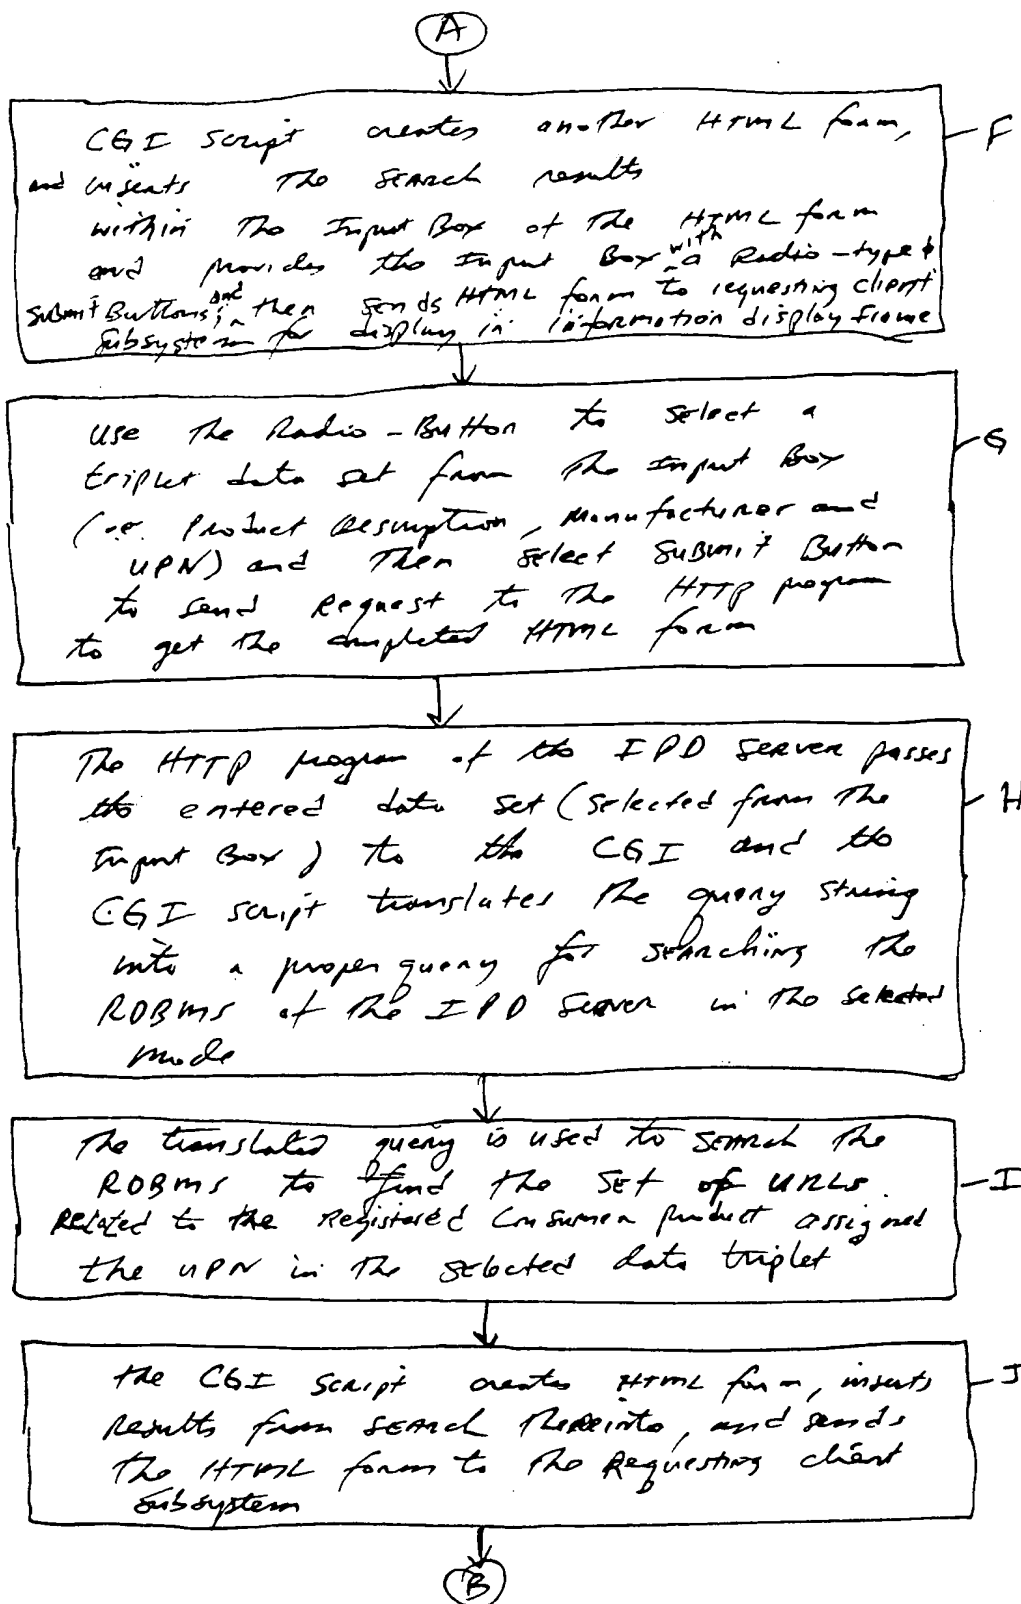 A
CGI Script creates another HTML form, F
and inserts the SEARCH results
within the Input Box of the HTML form
and provides the Input Box with a Radio-type &
Submit Buttons; and then sends HTML form to requesting client
Subsystem for display in information display frame
use the Radio-Button to select a
triplet data set from the Input Box G
(i.e. Product Description, Manufacturer and
UPN) and then select Submit Button
to send Request to the HTTP program
to get the completed HTML form
The HTTP program of the IPD Server passes
the entered data set (selected from the H
Input Box) to the CGI and the
CGI script translates the query string
into a proper query for SEARCHing the
RDBMS of the IPD Server in the selected
mode
The translated query is used to SEARCH the
RDBMS to find the SET of URLs I
Related to the Registered Consumer product assigned
the UPN in the selected data triplet
the CGI Script creates HTML form, inserts J
Results from SEARCH thereinto, and sends
the HTML form to the Requesting client
Subsystem
B